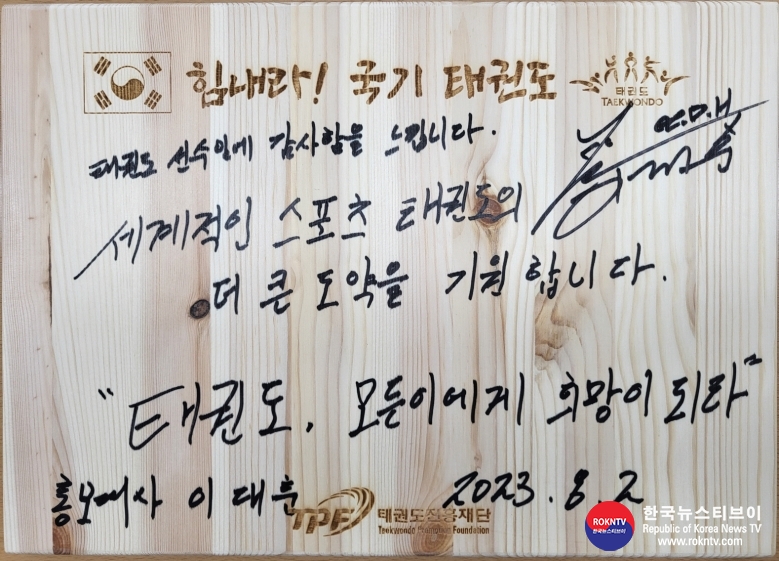 힘내라! 국기 태권도
태권도
TAEKWONDO
태권도 선수임에 감사함을 느낍니다.
세계적인 스포츠 태권도의
더 큰 도약을 기원합니다.
“태권도, 모든이에게 희망이 되라”
홍보대사 이대훈 2023. 8. 2
TPF 태권도진흥재단
Taekwondo Promotion Foundation
ROKNTV
한국뉴스티브이
한국뉴스티브이
Republic of Korea News TV
www.rokntv.com